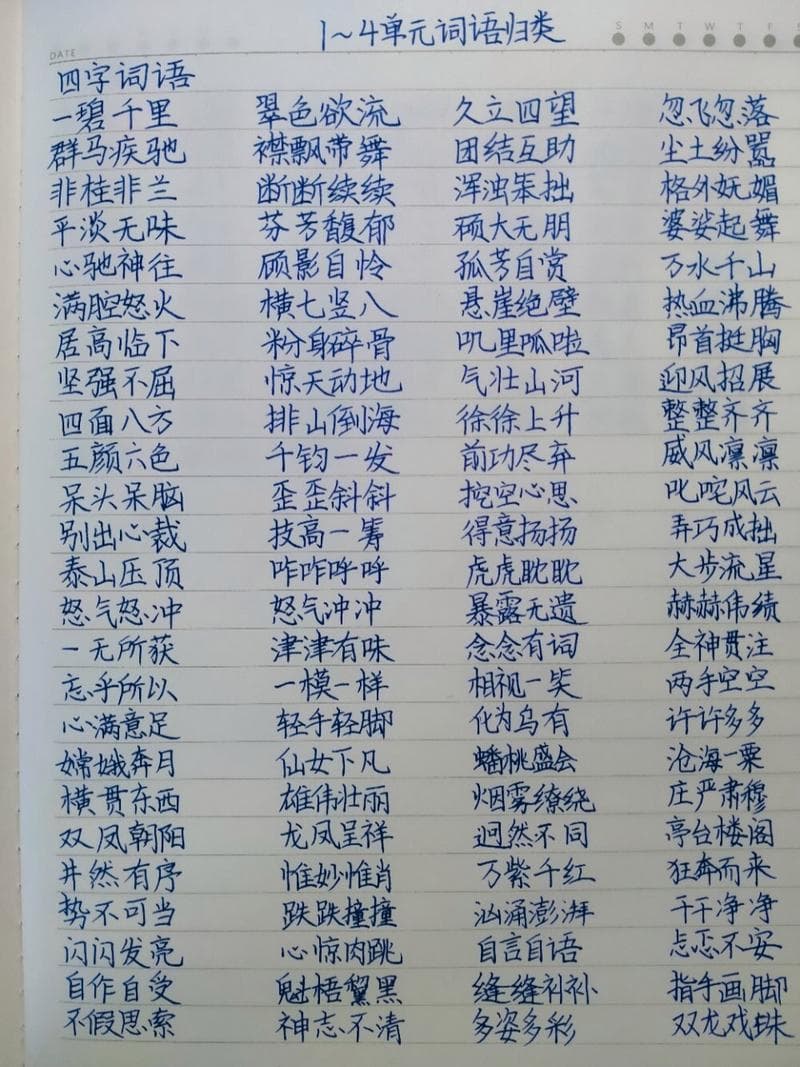 1～4单元词语归类
S M T W T F S
DATE
四字词语
一碧千里 翠色欲流 久立四望 忽飞忽落
群马疾驰 襟飘带舞 团结互助 尘土纷嚣
非桂非兰 断断续续 浑浊笨拙 格外妩媚
平淡无味 芬芳馥郁 硕大无朋 婆娑起舞
心驰神往 顾影自怜 孤芳自赏 万水千山
满腔怒火 横七竖八 悬崖绝壁 热血沸腾
居高临下 粉身碎骨 叽里呱啦 昂首挺胸
坚强不屈 惊天动地 气壮山河 迎风招展
四面八方 排山倒海 徐徐上升 整整齐齐
五颜六色 千钧一发 前功尽弃 威风凛凛
呆头呆脑 歪歪斜斜 挖空心思 叱咤风云
别出心裁 技高一筹 得意扬扬 弄巧成拙
泰山压顶 咋咋呼呼 虎虎眈眈 大步流星
怒气怒冲 怒气冲冲 暴露无遗 赫赫伟绩
一无所获 津津有味 念念有词 全神贯注
忘乎所以 一模一样 相视一笑 两手空空
心满意足 轻手轻脚 化为乌有 许许多多
嫦娥奔月 仙女下凡 蟠桃盛会 沧海一粟
横贯东西 雄伟壮丽 烟雾缭绕 庄严肃穆
双凤朝阳 龙凤呈祥 迥然不同 亭台楼阁
井然有序 惟妙惟肖 万紫千红 狂奔而来
势不可当 跌跌撞撞 汹涌澎湃 干干净净
闪闪发亮 心惊肉跳 自言自语 忐忑不安
自作自受 魁梧黧黑 缝缝补补 指手画脚
不假思索 神志不清 多姿多彩 双龙戏珠